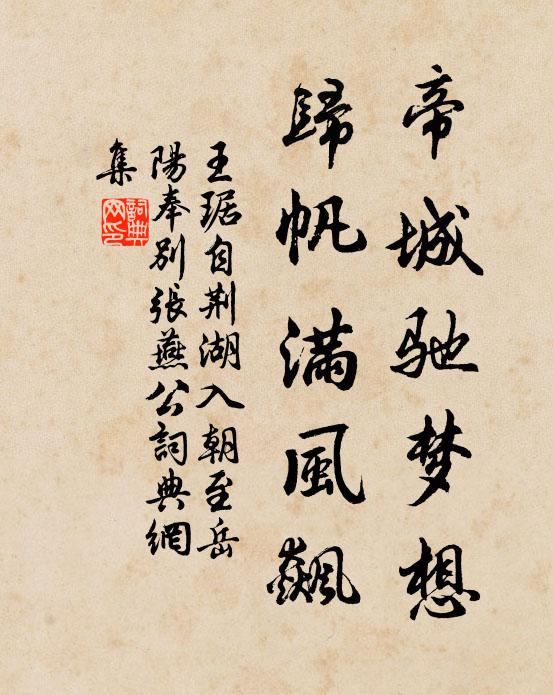 帝城驰梦想
歸帆滿風飆
王琚自荆湖入朝至岳
陽奉别張燕公詞典網
集
詞典
网印